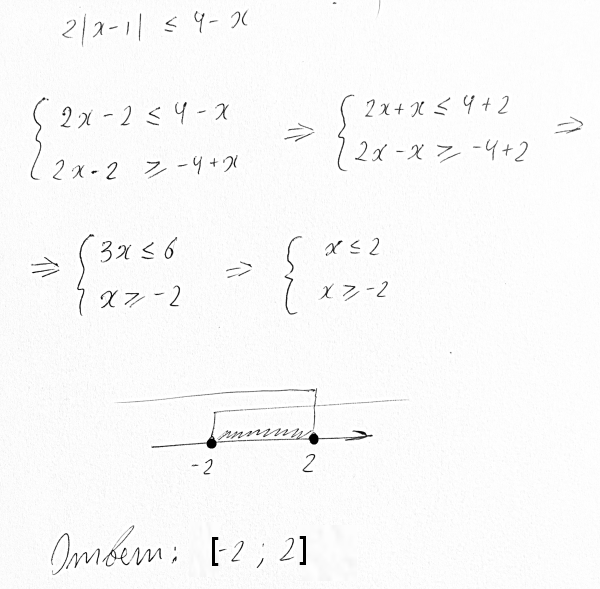 2|x-1| ≤ 4-x
{ 2x-2 ≤ 4-x ⇒ { 2x+x ≤ 4+2 ⇒
{ 2x-2 ≥ -4+x { 2x-x ≥ -4+2
⇒ { 3x ≤ 6 ⇒ { x ≤ 2
{ x ≥ -2 { x ≥ -2
-2 2
Ответ: [-2 ; 2]